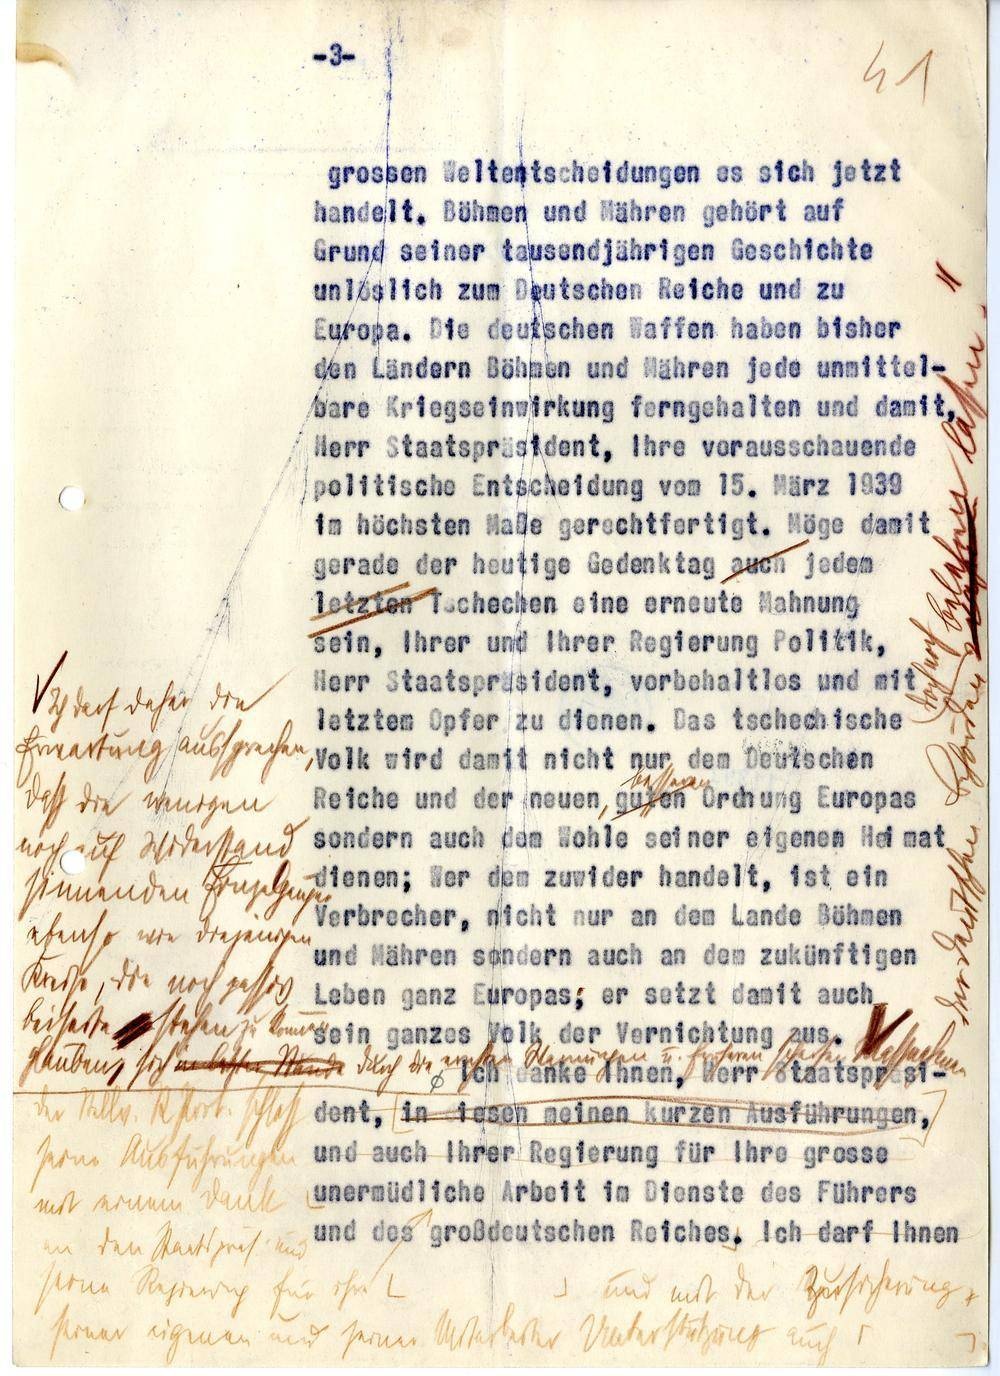 -3-
41
grossen Weltentscheidungen es sich jetzt
handelt. Böhmen und Mähren gehört auf
Grund seiner tausendjährigen Geschichte
unlöslich zum Deutschen Reiche und zu
Europa. Die deutschen Waffen haben bisher
den Ländern Böhmen und Mähren jede unmittel-
bare Kriegseinwirkung ferngehalten und damit,
Herr Staatspräsident, Ihre vorausschauende
politische Entscheidung vom 15. März 1939
im höchsten Maße gerechtfertigt. Möge damit
gerade der heutige Gedenktag auch jedem
letzten Tschechen eine erneute Mahnung
sein, Ihrer und Ihrer Regierung Politik,
Herr Staatspräsident, vorbehaltlos und mit
letztem Opfer zu dienen. Das tschechische
Volk wird damit nicht nur dem Deutschen
besseren
Reiche und der neuen, guten Ordnung Europas
sondern auch dem Wohle seiner eigenen Heimat
dienen; Wer dem zuwider handelt, ist ein
Verbrecher, nicht nur an dem Lande Böhmen
und Mähren sondern auch an dem zukünftigen
Leben ganz Europas; er setzt damit auch
sein ganzes Volk der Vernichtung aus.
Ich danke Ihnen, Herr Staatspräsi-
dent, in diesen meinen kurzen Ausführungen,
und auch Ihrer Regierung für Ihre grosse
unermüdliche Arbeit im Dienste des Führers
und des großdeutschen Reiches. Ich darf Ihnen
Ich darf daher die
Erwartung aussprechen,
daß die wenigen
noch auf Widerstand
sinnenden Einzelgänger
ebenso wie diejenigen
Kreise, die noch passiv
beiseite stehen zu können
glauben, sich durch die ernsten Warnungen u.
der deutschen Behörden
doch noch belehren lassen."
der Stellv. R. Prot. schloß
seine Ausführungen
mit einem Dank
an den Staatspräs. und
seine Regierung für ihre
und mit der Zusicherung
seiner eigenen und seiner Mitarbeiter Unterstützung auch